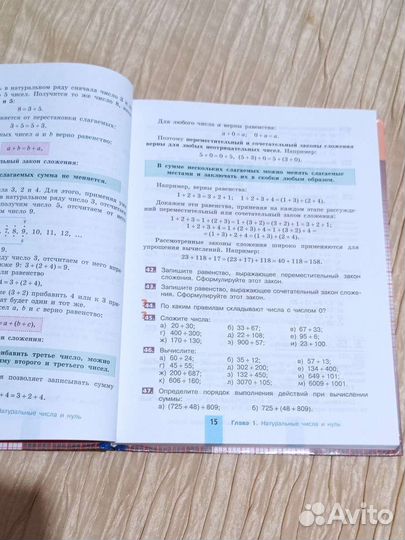 ь в натуральном ряду сначала число 3 и
5 чисел. Получится то же число 8,
и 5:
8 = 3 + 5.
еняется от перестановки слагаемых:
3 + 5 = 5 + 3.
ных чисел a и b верно равенство:
a + b = b + a,
ельный закон сложения:
слагаемых сумма не меняется.
ла 3, 2 и 4. Для этого, применив
ном ряду число 3, отсчитаем от него
число 9.
7, 8, 9, 10, 11, 12, ...
число 3, отсчитаем от него
9: 3 + (2 + 4) = 9.
равенство
4 = 3 + (2 + 4).
) прибавить 4 или к 3 при-
ат будет один и тот же.
a, b и c верно равенство,
= a + (b + c),
рибавить третье число, можно
мму второго и третьего чисел.
н позволяет записывать сумму
+ 4 = 3 + 2 + 4.
Натуральные числа и нуль
Для любого числа a верны равенства:
a + 0 = a, 0 + a = a.
Поэтому переместительный и сочетательный законы сложения
верны для любых неотрицательных чисел. Например:
5 + 0 = 0 + 5, (5 + 3) + 0 = 5 + (3 + 0).
В сумме нескольких слагаемых можно менять слагаемые
местами и заключать их в скобки любым образом.
Например, верны равенства:
1 + 2 + 3 = 3 + 2 + 1, 1 + 2 + 3 + 4 = (1 + 3) + (2 + 4).
Докажем эти равенства, применяя на каждом этапе рассужде-
ний переместительный или сочетательный закон сложения:
1 + 2 + 3 = (1 + 2) + 3 = 3 + (1 + 2) = 3 + (2 + 1) = 3 + 2 + 1;
1 + 2 + 3 + 4 = 1 + (2 + 3) + 4 = 1 + (3 + 2) + 4 =
= (1 + 3) + 2 + 4 = (1 + 3) + (2 + 4).
Рассмотренные законы сложения широко применяются для
упрощения вычислений. Например:
23 + 118 + 17 = (23 + 17) + 118 = 40 + 118 = 158.
42. Запишите равенство, выражающее переместительный закон
сложения. Сформулируйте этот закон.
43. Запишите равенство, выражающее сочетательный закон
сложения. Сформулируйте этот закон.
44. По каким правилам складывают числа с числом 0?
45. Сложите числа:
а) 20 + 30; б) 33 + 67; в) 67 + 33;
г) 400 + 300; д) 22 + 108; е) 95 + 6;
ж) 170 + 130; з) 900 + 57; и) 23 + 100.
46. Вычислите:
а) 60 + 24; б) 35 + 12; в) 57 + 13;
г) 45 + 55; д) 302 + 200; е) 134 + 66;
ж) 200 + 687; з) 132 + 450; и) 649 + 101;
к) 606 + 160; л) 3070 + 105; м) 6009 + 1001.
47. Определите порядок выполнения действий при вычислении
суммы:
а) (725 + 48) + 809; б) 725 + (48 + 809).
15
Глава 1. Натуральные числа и нуль
Avito